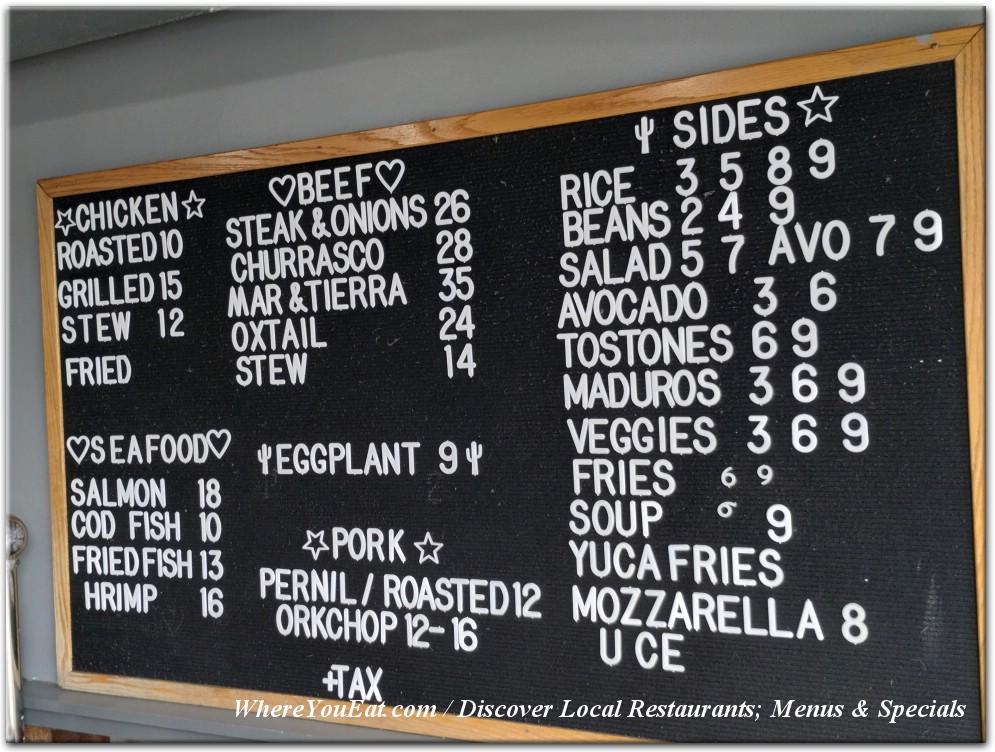 CHICKEN
ROASTED 10
GRILLED 15
STEW 12
FRIED
BEEF
STEAK & ONIONS 26
CHURRASCO 28
MAR & TIERRA 35
OXTAIL 24
STEW 14
SEAFOOD
SALMON 18
COD FISH 10
FRIED FISH 13
HRIMP 16
EGGPLANT 9
PORK
PERNIL / ROASTED 12
ORKCHOP 12-16
+TAX
SIDES
RICE 3 5 8 9
BEANS 2 4 9
SALAD 5 7 AVO 7 9
AVOCADO 3 6
TOSTONES 6 9
MADUROS 3 6 9
VEGGIES 3 6 9
FRIES 6 9
SOUP 6 9
YUCA FRIES
MOZZARELLA 8
U CE
WhereYouEat.com / Discover Local Restaurants; Menus & Specials